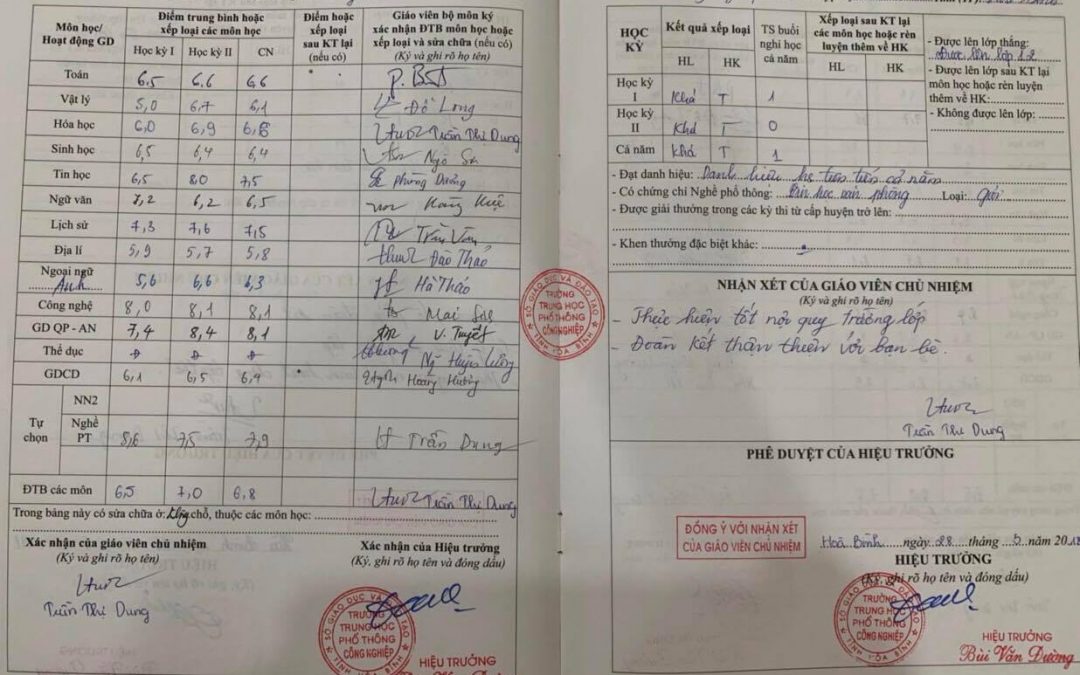 Môn học/ Hoạt động GD
Điểm trung bình hoặc xếp loại các môn học
Điểm hoặc xếp loại sau KT lại (nếu có)
Giáo viên bộ môn ký xác nhận ĐTB môn học hoặc xếp loại và sửa chữa (nếu có)
(Ký và ghi rõ họ tên)
Học kỳ I Học kỳ II CN
Toán 6,5 6.6 6,6
Vật lý 5,0 6,7 6,1 Đỗ Long
Hóa học 6,0 6,9 6,6 Trần Thị Dung
Sinh học 6,5 6,4 6,4 Ngô
Tin học 6,5 8,0 7,5 Phùng Dưỡng
Ngữ văn 7,2 6,2 6,5 Hoàng
Lịch sử 7,3 7,6 7,5 Trần Vân
Địa lí 5,9 5,7 5,8 Đào Thảo
Ngoại ngữ
Anh 5,6 6,6 6,3 Hà Thảo
Công nghệ 8,0 8,1 8,1 Mai
GD QP - AN 7,4 8,4 8,1 V. Tuyết
Thể dục Đ Đ Đ
GDCD 6,1 6,5 6,4 Hoàng Hường
Tự chọn
NN2
Nghề PT 8,6 7,5 7,9 Trần Dung
ĐTB các môn 6,5 7,0 6,8 Trần Thị Dung
Trong bảng này có sửa chữa ở: Không chỗ, thuộc các môn học:
Xác nhận của giáo viên chủ nhiệm
(Ký và ghi rõ họ tên)
Trần Thị Dung
Xác nhận của Hiệu trưởng
(Ký, ghi rõ họ tên và đóng dấu)
SỞ GIÁO DỤC VÀ ĐÀO TẠO
TỈNH HÒA BÌNH
TRƯỜNG
TRUNG HỌC
PHỔ THÔNG
CÔNG NGHIỆP
HIỆU TRƯỞNG
SỞ GIÁO DỤC VÀ ĐÀO TẠO
TỈNH HÒA BÌNH
TRƯỜNG
TRUNG HỌC
PHỔ THÔNG
CÔNG NGHIỆP
HỌC KỲ
Kết quả xếp loại
TS buổi nghỉ học cả năm
Xếp loại sau KT lại các môn học hoặc rèn luyện thêm về HK
HL HK HL HK
Học kỳ I Khá T 1
Học kỳ II Khá T 0
Cả năm Khá T 1
- Được lên lớp thẳng:
Được lên lớp 12
- Được lên lớp sau KT lại
môn học hoặc rèn luyện
thêm về HK:
- Không được lên lớp:
- Đạt danh hiệu: Danh hiệu hs tiên tiến cả năm
- Có chứng chỉ Nghề phổ thông: Tin học văn phòng Loại: Giỏi
- Được giải thưởng trong các kỳ thi từ cấp huyện trở lên:
- Khen thưởng đặc biệt khác:
NHẬN XÉT CỦA GIÁO VIÊN CHỦ NHIỆM
(Ký và ghi rõ họ tên)
- Thực hiện tốt nội quy trường lớp
- Đoàn kết thân thiện với bạn bè.
Trần Thị Dung
PHÊ DUYỆT CỦA HIỆU TRƯỞNG
ĐỒNG Ý VỚI NHẬN XÉT
CỦA GIÁO VIÊN CHỦ NHIỆM
Hoà Bình ngày 28 tháng 5 năm 2018
HIỆU TRƯỞNG
(Ký, ghi rõ họ tên và đóng dấu)
SỞ GIÁO DỤC VÀ ĐÀO TẠO
TỈNH HÒA BÌNH
TRƯỜNG
TRUNG HỌC
PHỔ THÔNG
CÔNG NGHIỆP
HIỆU TRƯỞNG
Bùi Văn Đường